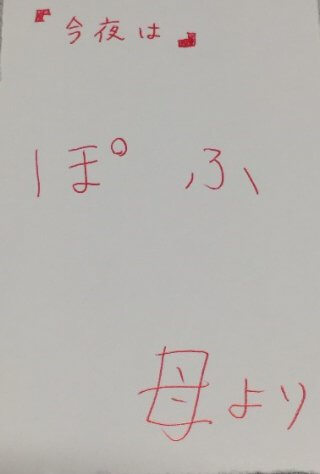 『今夜は』
ぽふ
母より